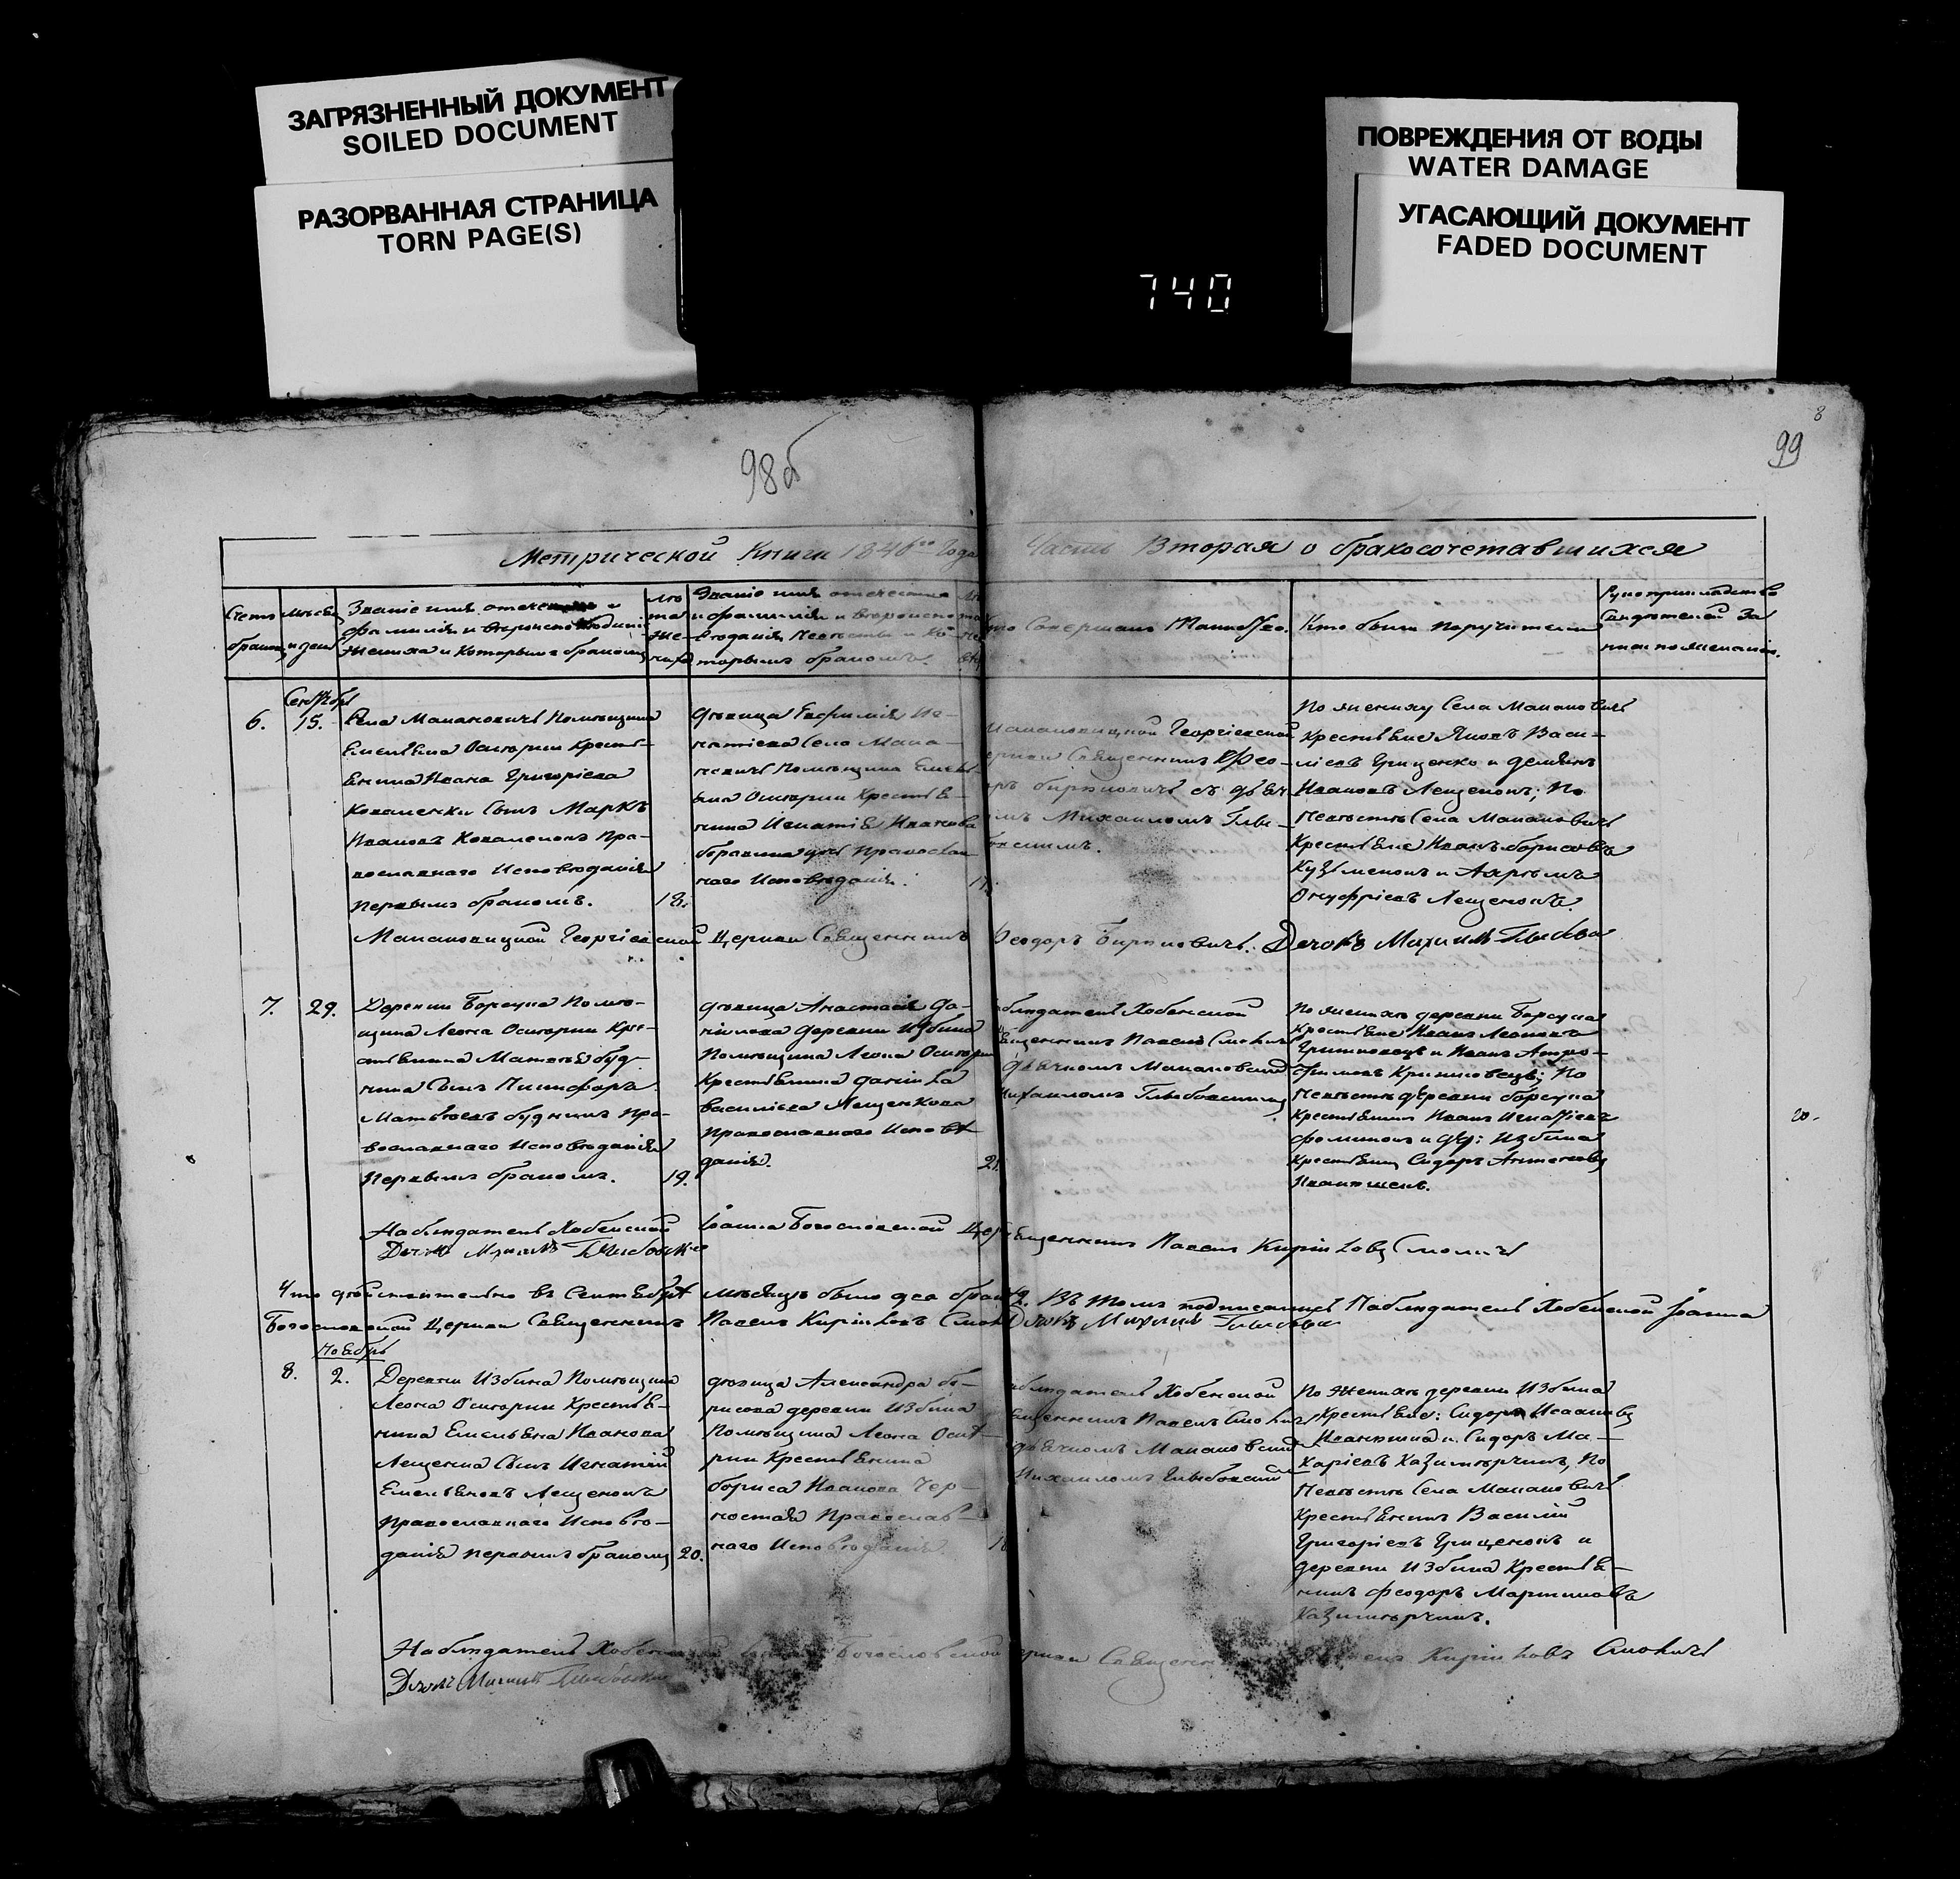 ЗАГРЯЗНЕННЫЙ ДОКУМЕНТ
SOILED DOCUMENT
РАЗОРВАННАЯ СТРАНИЦА
TORN PAGE(S)
ПОВРЕЖДЕНИЯ ОТ ВОДЫ
WATER DAMAGE
УГАСАЮЩИЙ ДОКУМЕНТ
FADED DOCUMENT
740
98об
8
99
Метрической Книги 184 Года Часть Вторая о бракосочетавшихся
Счетъ браковъ
Мѣсяцъ и день
Званіе имя отечество и
фамилія и вероисповѣданіе
жениха и которымъ бракомъ
Лѣта жениха
Званіе имя отечество
и фамилія и вероиспо-
вѣданія Невѣсты и ко-
торымъ бракомъ.
Совершалъ Таинство.
Кто были поручители
Рукоприкладство
Свидетелей За-
писи по желанію.
Сентябрь
6. 15.
Села Макановичъ Помѣщика
Емельяна Оскерки Кресть-
янина Ивана Григоріева
Коваленки Сынъ Марко
Ивановъ Коваленокъ Пра-
вославнаго Исповѣданія
первымъ бракомъ. 18.
Дѣвица Евфимія Иг-
натіева Села Мака-
новичъ Помѣщика Емель-
яна Оскерки Крестья-
нина Игнатія Иванова
Православ-
наго Исповѣданія.
Макановицкой Георгіевской
Церкви Священникъ Фео-
доръ Бирюковичъ съ дьяч-
комъ Михаиломъ Глы-
бовскимъ.
По жениху Села Макановичъ
Крестьяне Яковъ Васи-
ліевъ Грищенко и Демьянъ
Ивановъ Лещенокъ; По
Невѣстѣ Села Макановичъ
Крестьяне Иванъ Борисовъ
Кузьменокъ и Артемъ
Онуфріевъ Лещенокъ.
Макановицкой Георгіевской Церкви Священникъ Феодоръ Бирюковичъ. Дьячокъ Михаилъ
7. 29.
Деревни Борсука Помѣ-
щика Леона Оскерки Кре-
стьянина Матвѣя Буд-
ника Сынъ Никифоръ
Матвѣевъ Будникъ Пра-
вославнаго Исповѣданія
Первымъ бракомъ. 19.
Дѣвица Анастасія Да-
нилова деревни Избина
Помѣщика Леона Оскерки
Крестьянина Данила
Василіева Лещенкова
Православнаго Исповѣ-
данія. 21.
Наблюдатель Хобенской
Священникъ Павелъ Смоличъ
дьячкомъ Макановскимъ
Михаиломъ Глыбовскимъ
По жениху деревни Борсука
Крестьяне Иванъ Леоновъ
и Иванъ
По
Невѣстѣ деревни Борсука
Крестьянинъ Иванъ Игнатіевъ
и дер: Избина
Крестьянинъ Сидоръ
20.
Наблюдатель Хобенской Іоанна Богословской Церкви Священникъ Павелъ Кириловъ Смоличъ
Дьячокъ Михаилъ Глыбовскій
Что дѣйствительно въ Сентябрѣ мѣсяцѣ было два брака 2. Въ томъ подписались Наблюдатель Хобенской Іоанна
Богословской Церкви Священникъ Павелъ Кириловъ Смоличъ Дьячокъ Михаилъ
Ноябрь
8. 2.
Деревни Избина Помѣщика
Леона Оскерки Крестья-
нина Емельяна Иванова
Лещенка Сынъ Игнатій
Емельяновъ Лещенокъ
Православнаго Исповѣ-
данія первымъ бракомъ 20.
Дѣвица Александра Бо-
рисова деревни Избина
Помѣщика Леона Оске-
рки Крестьянина
Бориса Иванова Чер-
Православ-
наго Исповѣданія.
Наблюдатель Хобенской
Священникъ Павелъ Смоличъ
дьячкомъ Макановскимъ
Михаиломъ Глыбовскимъ
По Жениху деревни Избина
Крестьяне: Сидоръ Исааковъ
и Сидоръ Ма-
каріевъ Казимѣрчикъ, По
Невѣстѣ Села Макановичъ
Крестьянинъ Василій
Григоріевъ Грищенокъ и
деревни Избина Крестья-
нинъ Феодоръ Мартиновъ
Казимѣрчикъ.
Наблюдатель Хобенской Богословской Церкви Священникъ Кириловъ Смоличъ
Дьячокъ Михаилъ Глыбовскій